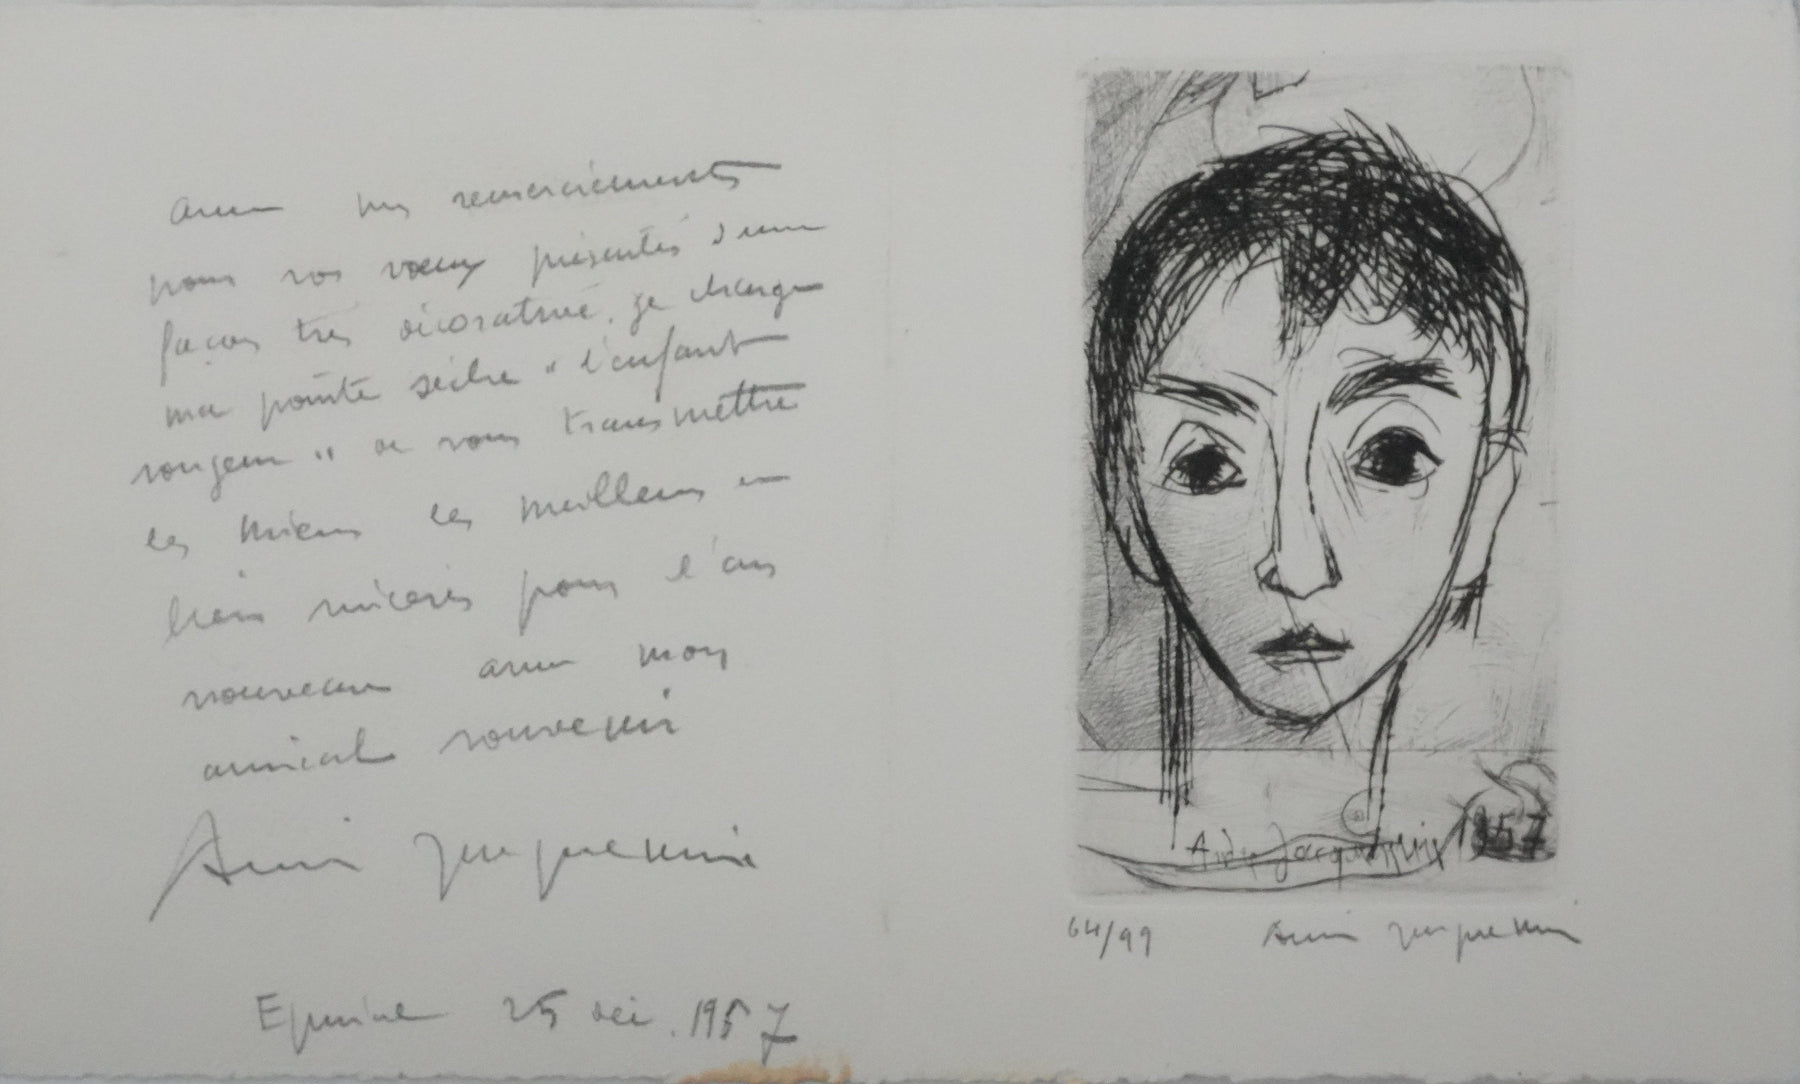 avec mes remerciements
pour vos vœux présentés d'une
façon très décorative, je charge
ma pointe sèche "l'enfant
songeur" de vous transmettre
les miens les meilleurs et
bien sincères pour l'an
nouveau avec mon
amical souvenir
André Jacquemin
Epinal 25 déc. 1957
André Jacquemin 1957
64/99 André Jacquemin